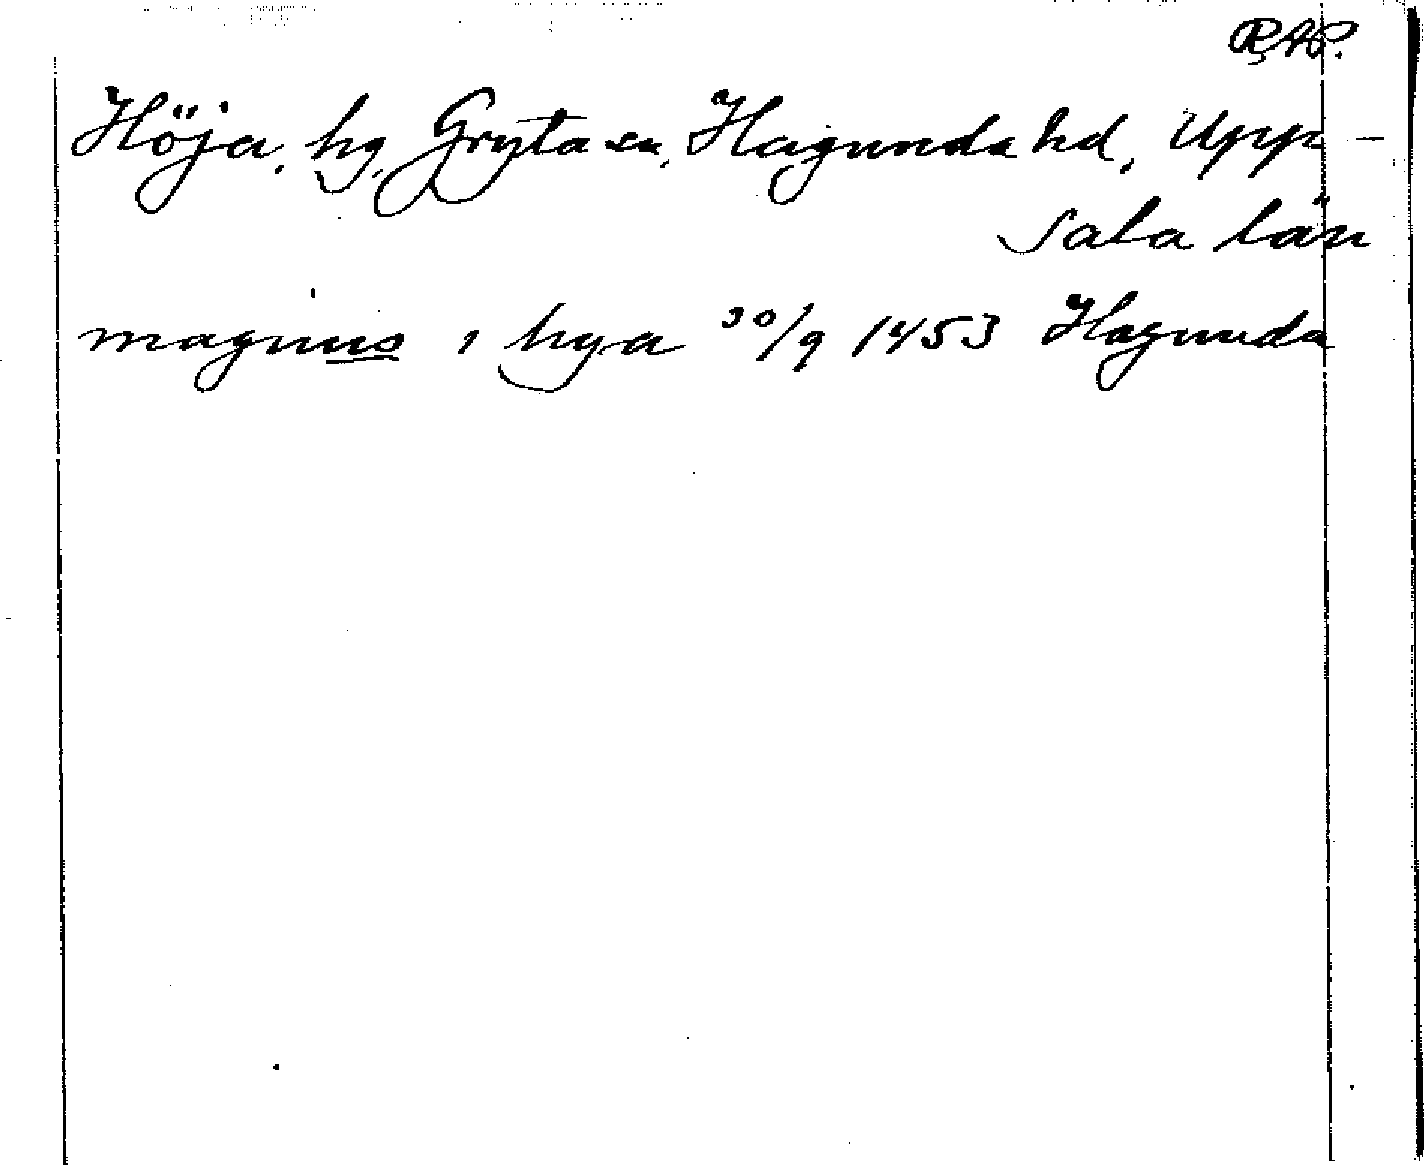 RAP.
Höja, hg, Gryta sn, Hagunda hd, Upp-
sala län
magnus i hya 30/9 1453 Hagunda